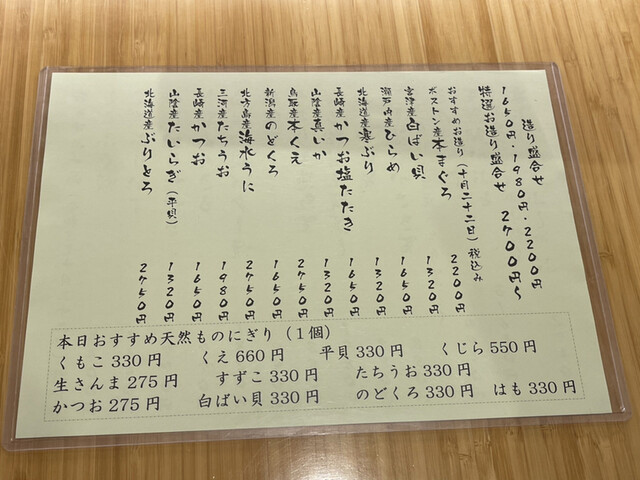 造り盛合せ
1650円・1980円・2200円
特選お造り盛合せ 2700円〜
おすすめお造り(十月二十二日)税込み
ボストン産本まぐろ 2200円
宮津産白ばい貝 1320円
瀬戸内産ひらめ 1650円
北海道産寒ぶり 1320円
長崎産かつお塩たたき 1650円
山陰産真いか 1320円
鳥取産本くえ 2750円
新潟産のどくろ 1650円
北方島産海水うに 2750円
三河産たちうお 1980円
長崎産かつお 1650円
山陰産たいらぎ(平貝) 1320円
北海道産ぶりとろ 2750円
本日おすすめ天然ものにぎり(1個)
くもこ330円 くえ660円 平貝330円 くじら550円
生さんま275円 すずこ330円 たちうお330円
かつお275円 白ばい貝330円 のどくろ330円 はも330円